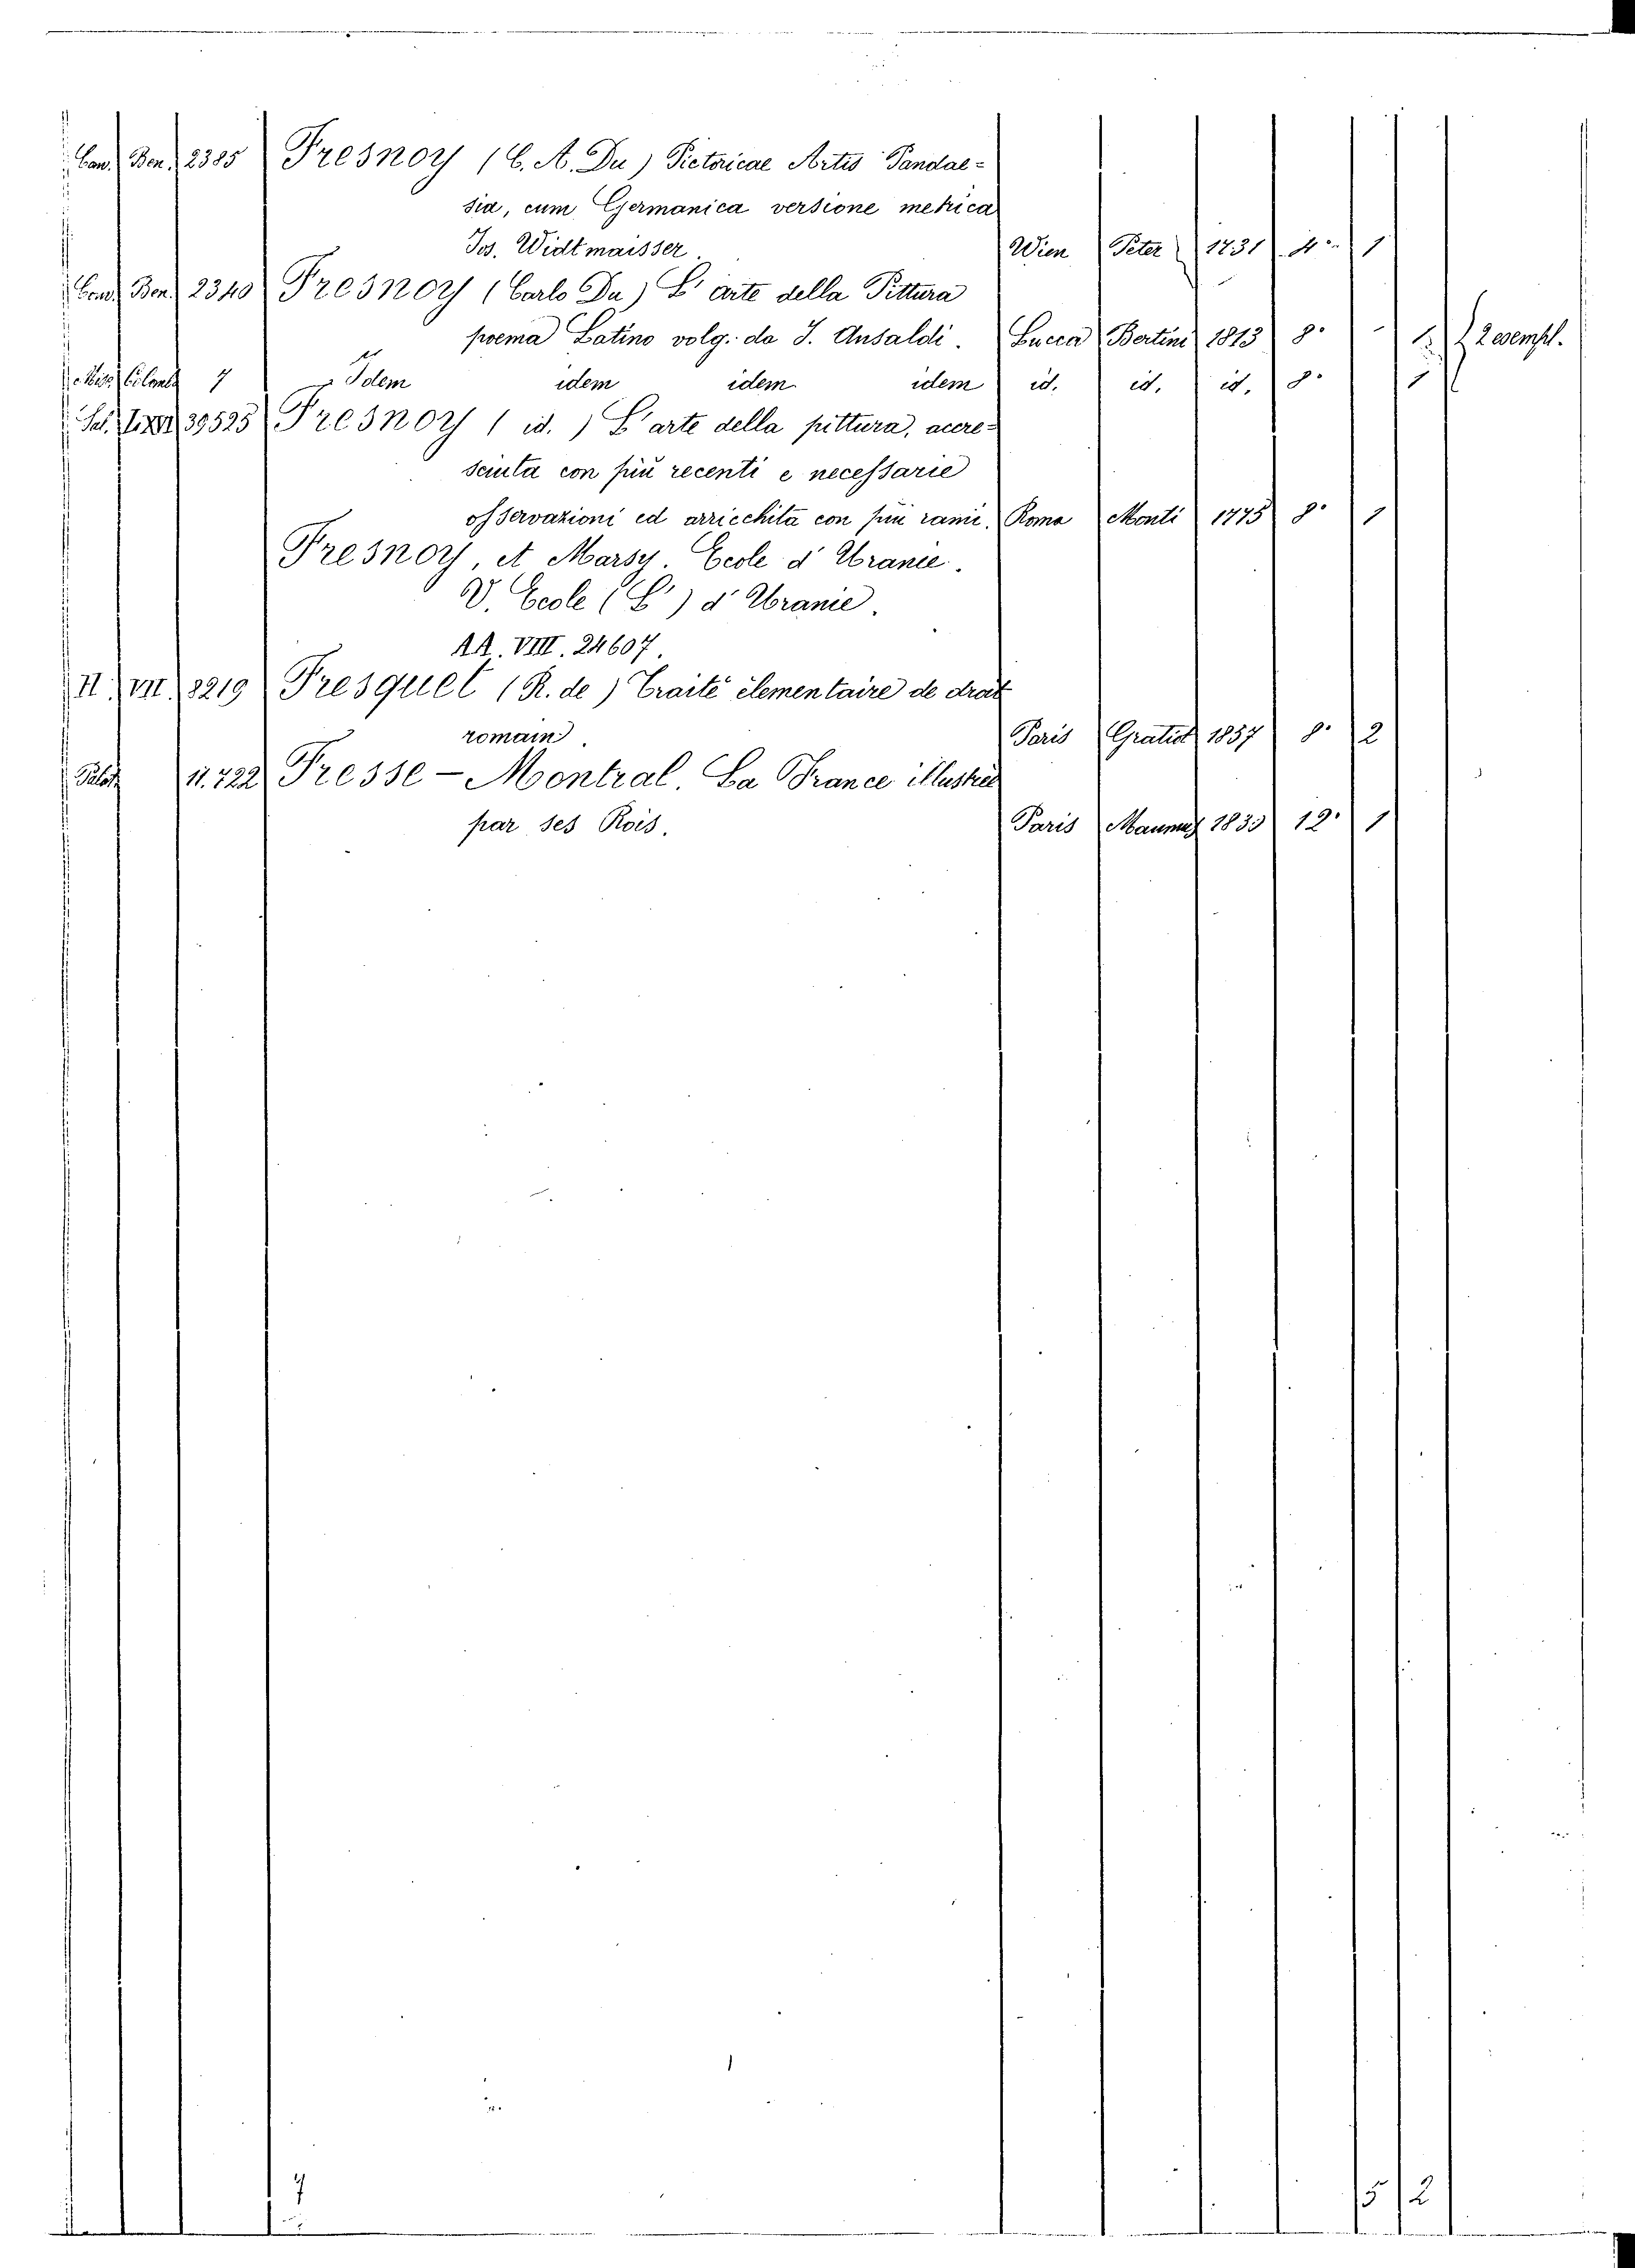 Can. Ben. 2385 Fresnoy (C. A. Du) Pictoricae Artis Pandae=
sia, cum Germanica versione metrica
Jos. Widtmaisser. Wien Peter 1731 4° 1
Cand. Ben. 2340 Fresnoy (Carlo Du) L'arte della Pittura
poema Latino volg. da I. Ansaldi. Lucca Bertini 1813 8° 1 } 2 esempl.
Misc. Colomb 7 Idem idem idem idem id. id. id. 8° 1
Sal. 39525 Fresnoy (id.) L'arte della pittura, accre=
sciuta con più recenti e necessarie
osservazioni ed arricchita con più rami. Roma Monti 1775 8° 1
Fresnoy, et Marsy. Ecole d'Uranie.
V. Ecole (L') d'Uranie.
AA. VIII. 24607.
II. VII. 8219 Fresquet (R. de) Traité élementaire de droit
romain. Paris Gratiot 1857 8° 2
Palat. 11.722 Fresse-Montral. La France illustrée
par ses Rois. Paris 183 12° 1
7 5 2